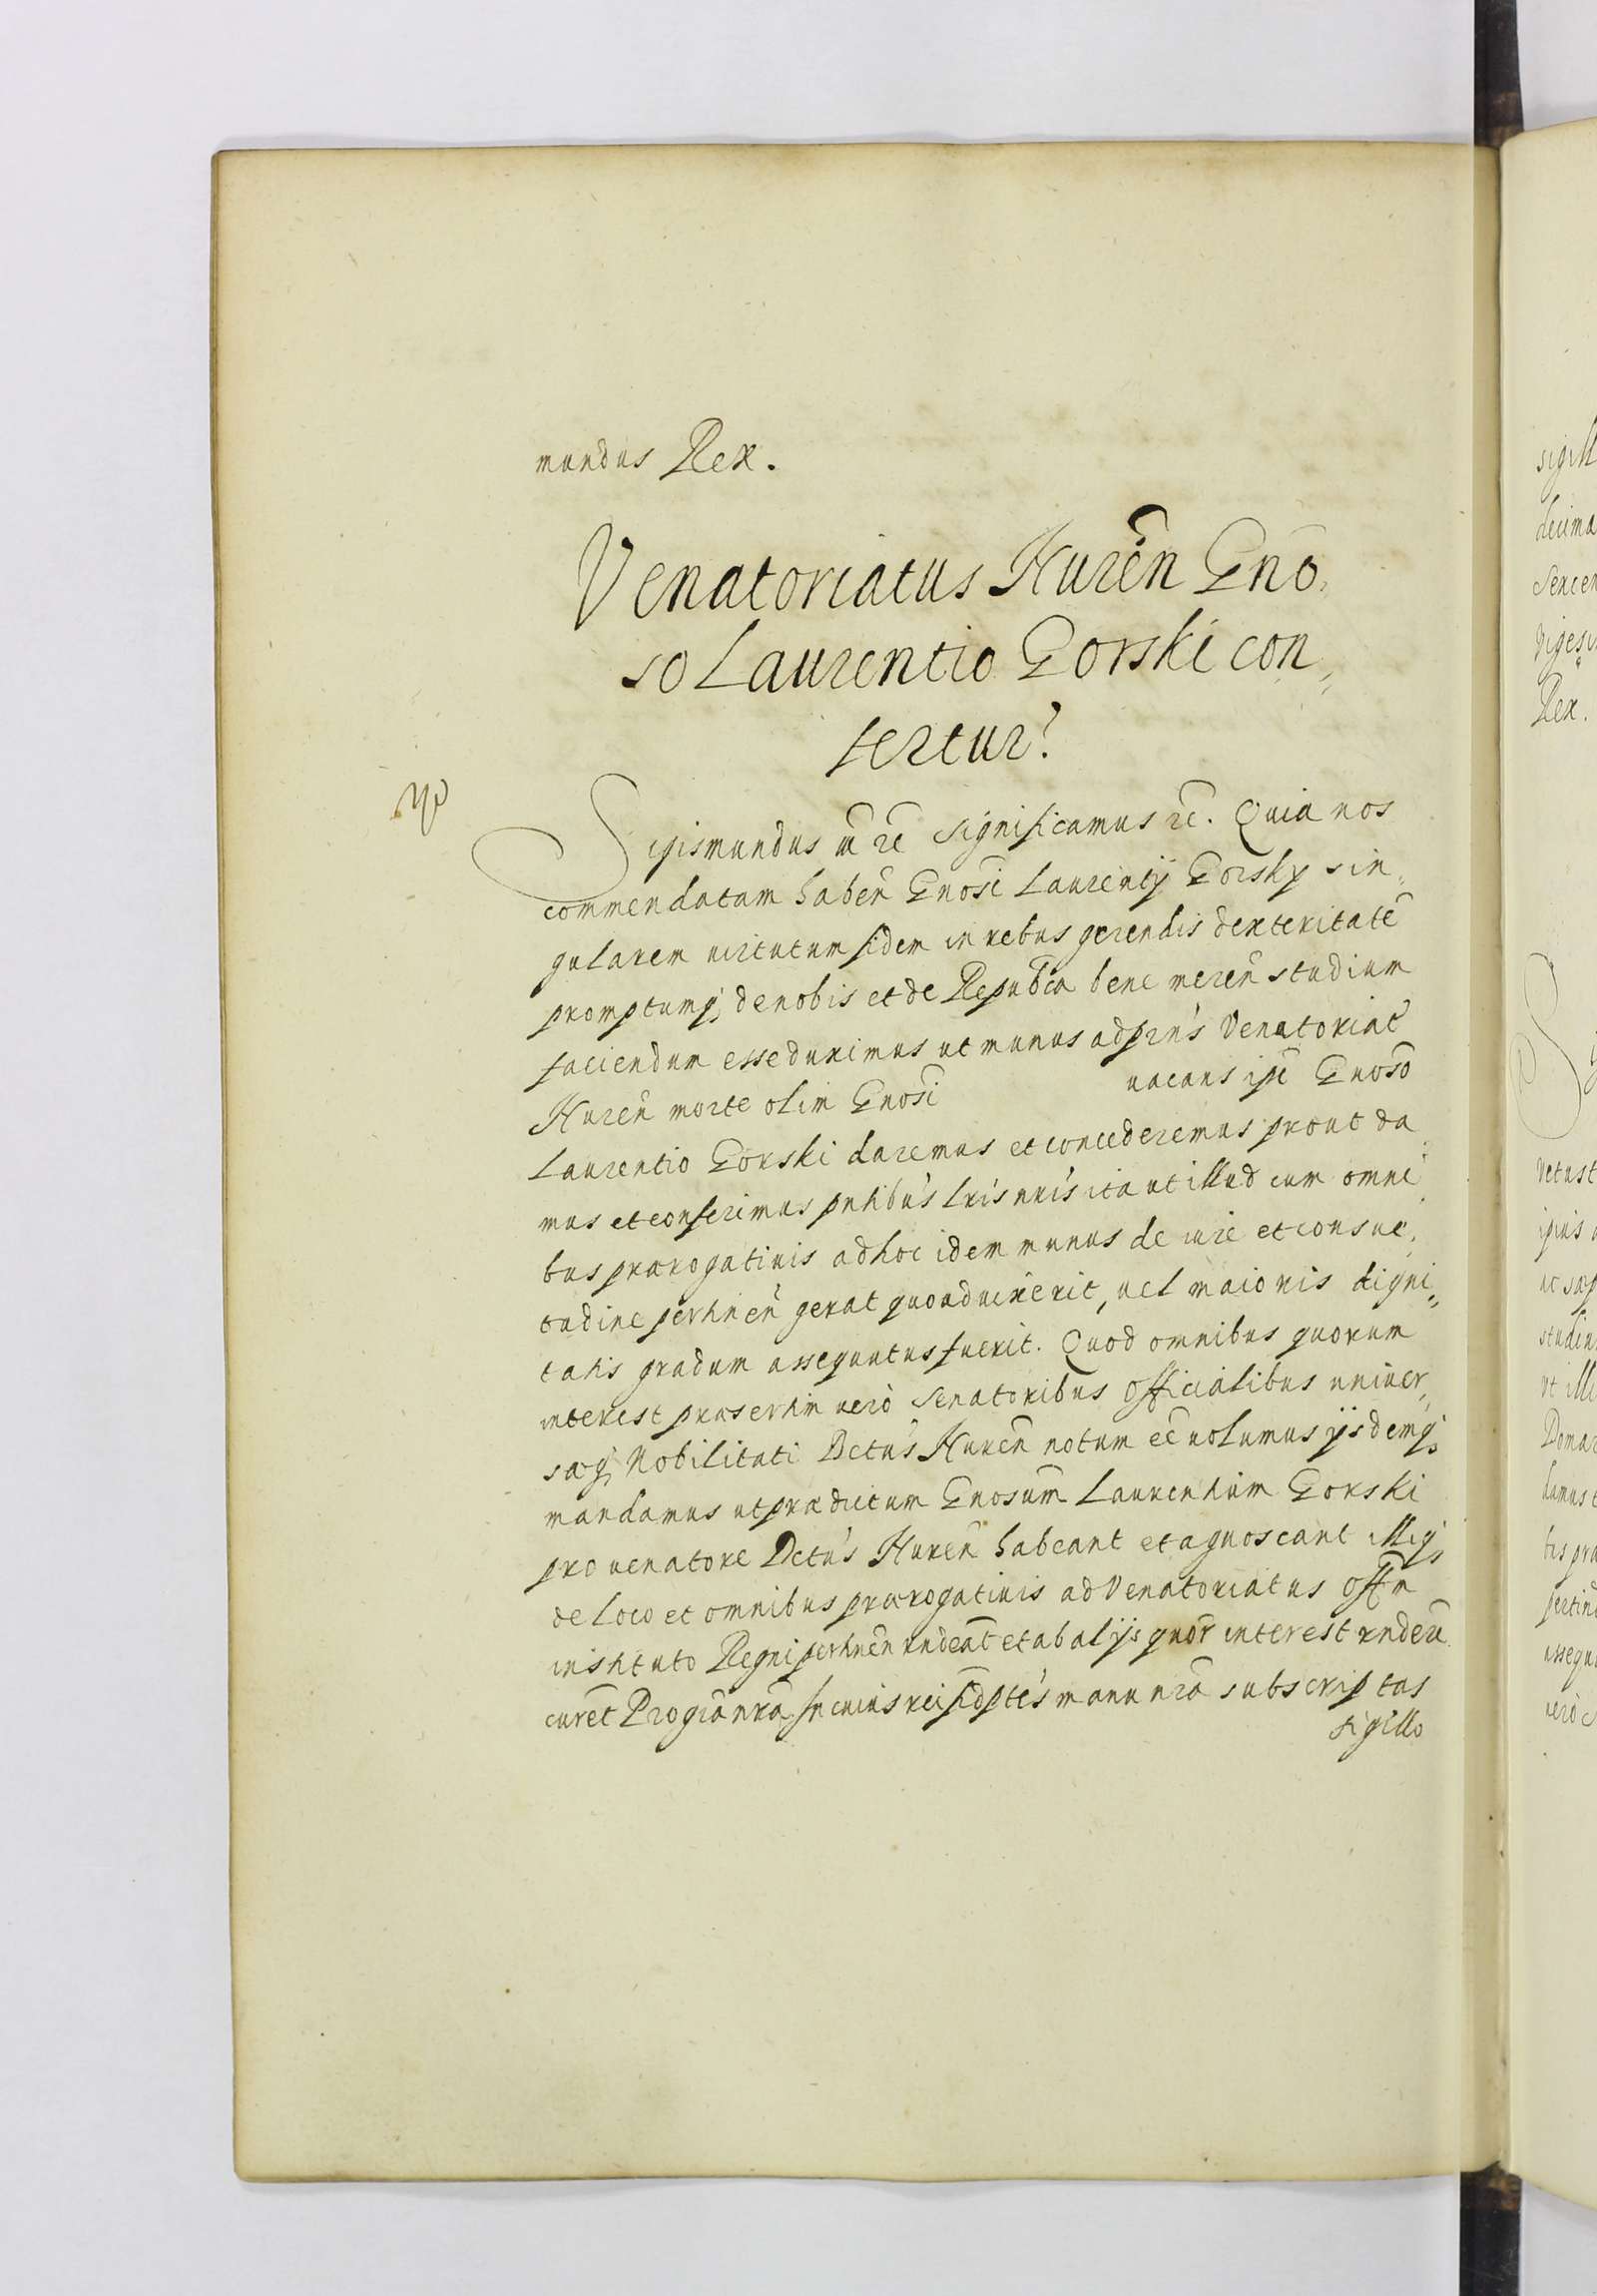 mundus Rex.
Venatoriatus Nuren̄ Gno,
so Laurentio Gorski con,,
fertur.
Sigismundus m̄ rc̄ significamus rc̄. Quia nos
commendatam haben̄ Gnosi Laurentij Gorsky sin,,
gularem uirtutum fidem in rebus gerendis dexteritatē
promptumq; de nobis et de Repub̄ca bene meren̄ studium
faciendum esse duximus ut munus ad prn's Venatoriat'
Nuren̄ morte olim Gnosi uacans ip̄e Gnoso
Laurentio Gorski daremus et concederemus prout da
mus et conferimus pn̄tibus lris nris ita ut illud cum omni
bus prærogatiuis ad hoc idem munus de iure et consue,
tudine pertinen̄ gerat quoad uixerit, uel maioris digni,,
tatis gradum assequutus fuerit. Quod omnibus quorum
interest præsertim uerò Senatoribus Officialibus uniuer,,
sæq; Nobilitati Dctus Nuren̄ notum ee̅ uolumus ijsdemq;
mandamus ut prædictum Gnosum̄ Laurentium Gorski
pro uenatore Dctus Nuren̄ habeant et agnoscant illiq;
de loco et omnibus prærogatiuis ad Venatoriatus Offm
instituto Regni pertinen̄ rndeāt et ab alijs quōr interest rnderi
curēt Pro grā nrā. In cuius rei fid ptes manu nrā subscriptas
sigillo
sigill
decima
Vigesi
Rex.
vetust
studiu
ut illi
Domar
damus
bus præ
pertin
assequ
uerò